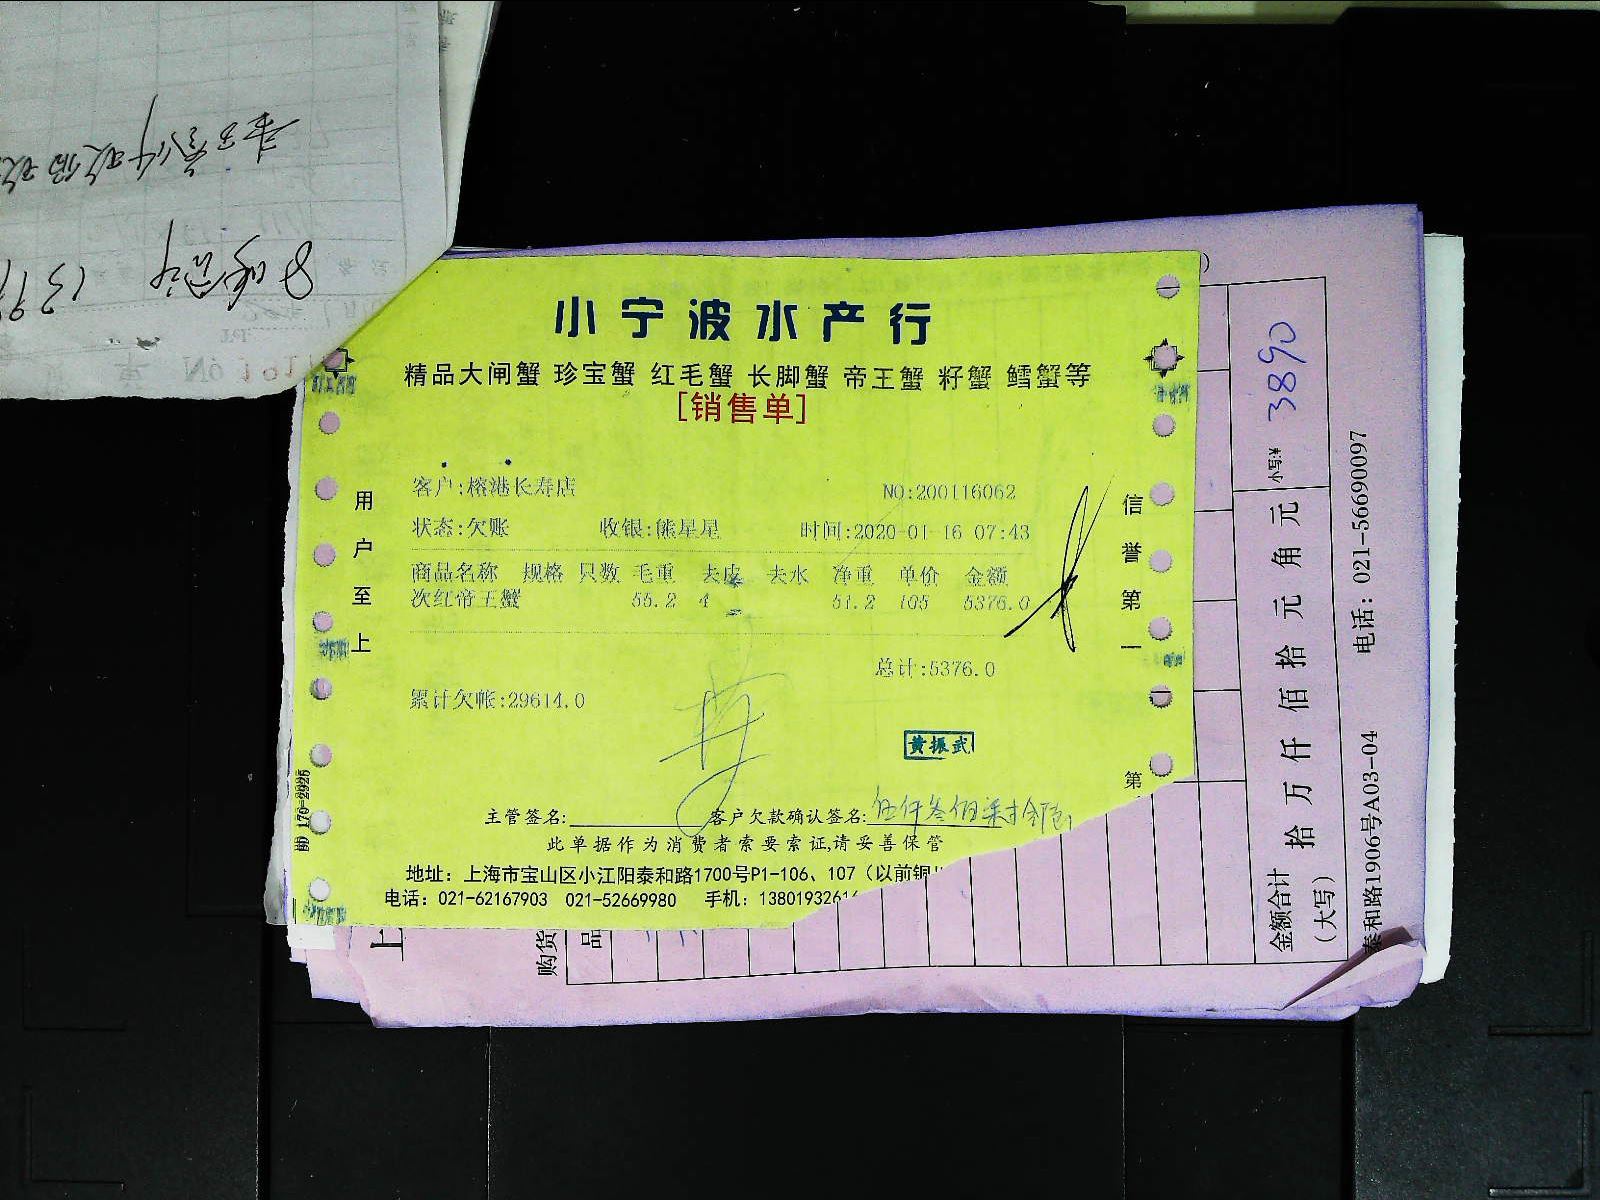 小宁波水产行
精品大闸蟹 珍宝蟹 红毛蟹 长脚蟹 帝王蟹 籽蟹 鳕蟹等
[销售单]
客户:榕港长寿店 NO:200116062
状态:欠账 收银:熊星星 时间:2020-01-16 07:43
商品名称 规格 只数 毛重 去皮 去水 净重 单价 金额
次红帝王蟹 55.2 4 51.2 105 5376.0
总计:5376.0
累计欠帐:29614.0
黄振武
主管签名: 客户欠款确认签名:伍仟叁佰柒拾陆
此单据作为消费者索要索证,请妥善保管
地址：上海市宝山区小江阳泰和路1700号P1-106、107（以前铜
电话：021-62167903 021-52669980 手机：1380193261
用户至上
信誉第一
第
170-2925
购货
品
金额合计
（大写） 拾 万 仟 佰 拾 元 角 元 小写:¥ 3890
泰和路1906号A03-04 电话：021-56690097